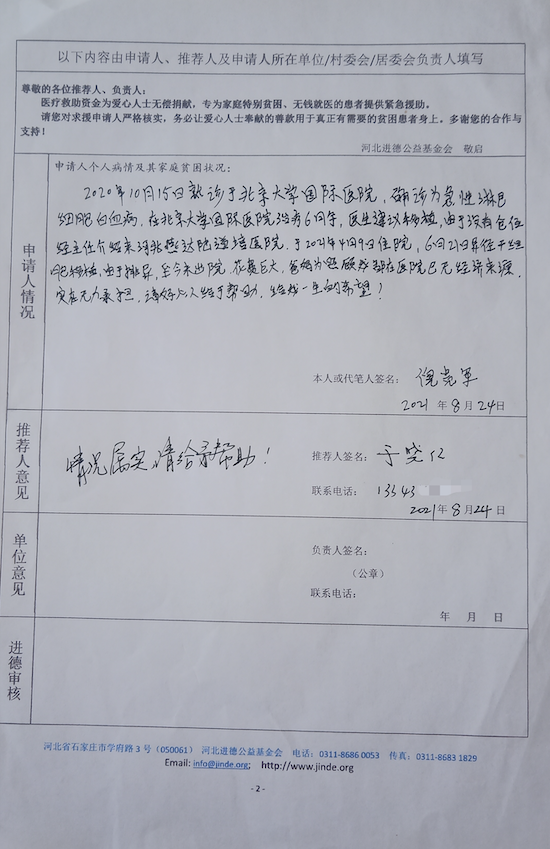 以下内容由申请人、推荐人及申请人所在单位/村委会/居委会负责人填写
尊敬的各位推荐人、负责人：
医疗救助资金为爱心人士无偿捐献，专为家庭特别贫困、无钱就医的患者提供紧急援助。
请您对求援申请人严格核实，务必让爱心人士奉献的善款用于真正有需要的贫困患者身上。多谢您的合作与
支持！
河北进德公益基金会 敬启
申请人情况
申请人个人病情及其家庭贫困状况：
2020年10月15日就诊于北京大学国际医院，确诊为急性淋巴
细胞白血病，在北京大学国际医院治疗6个月，医生建议移植，由于没有仓位
经主任介绍来河北燕达陆道培医院。于2021年4月9日住院，6月21日异体干细
胞移植，由于排异，至今未出院，花费巨大，爸妈为照顾我都在医院已无经济来源，
实在无力承担，请好心人给予帮助，给我一生的希望！
本人或代笔人签名：
2021年8月24日
推荐人意见
情况属实，请给予帮助！
推荐人签名：于
联系电话：13343
2021年8月24日
单位意见
负责人签名：
（公章）
联系电话：
年 月 日
进德审核
河北省石家庄市学府路3号（050061） 河北进德公益基金会 电话：0311-8686 0053 传真：0311-8683 1829
Email: info@jinde.org; http://www.jinde.org
- 2 -